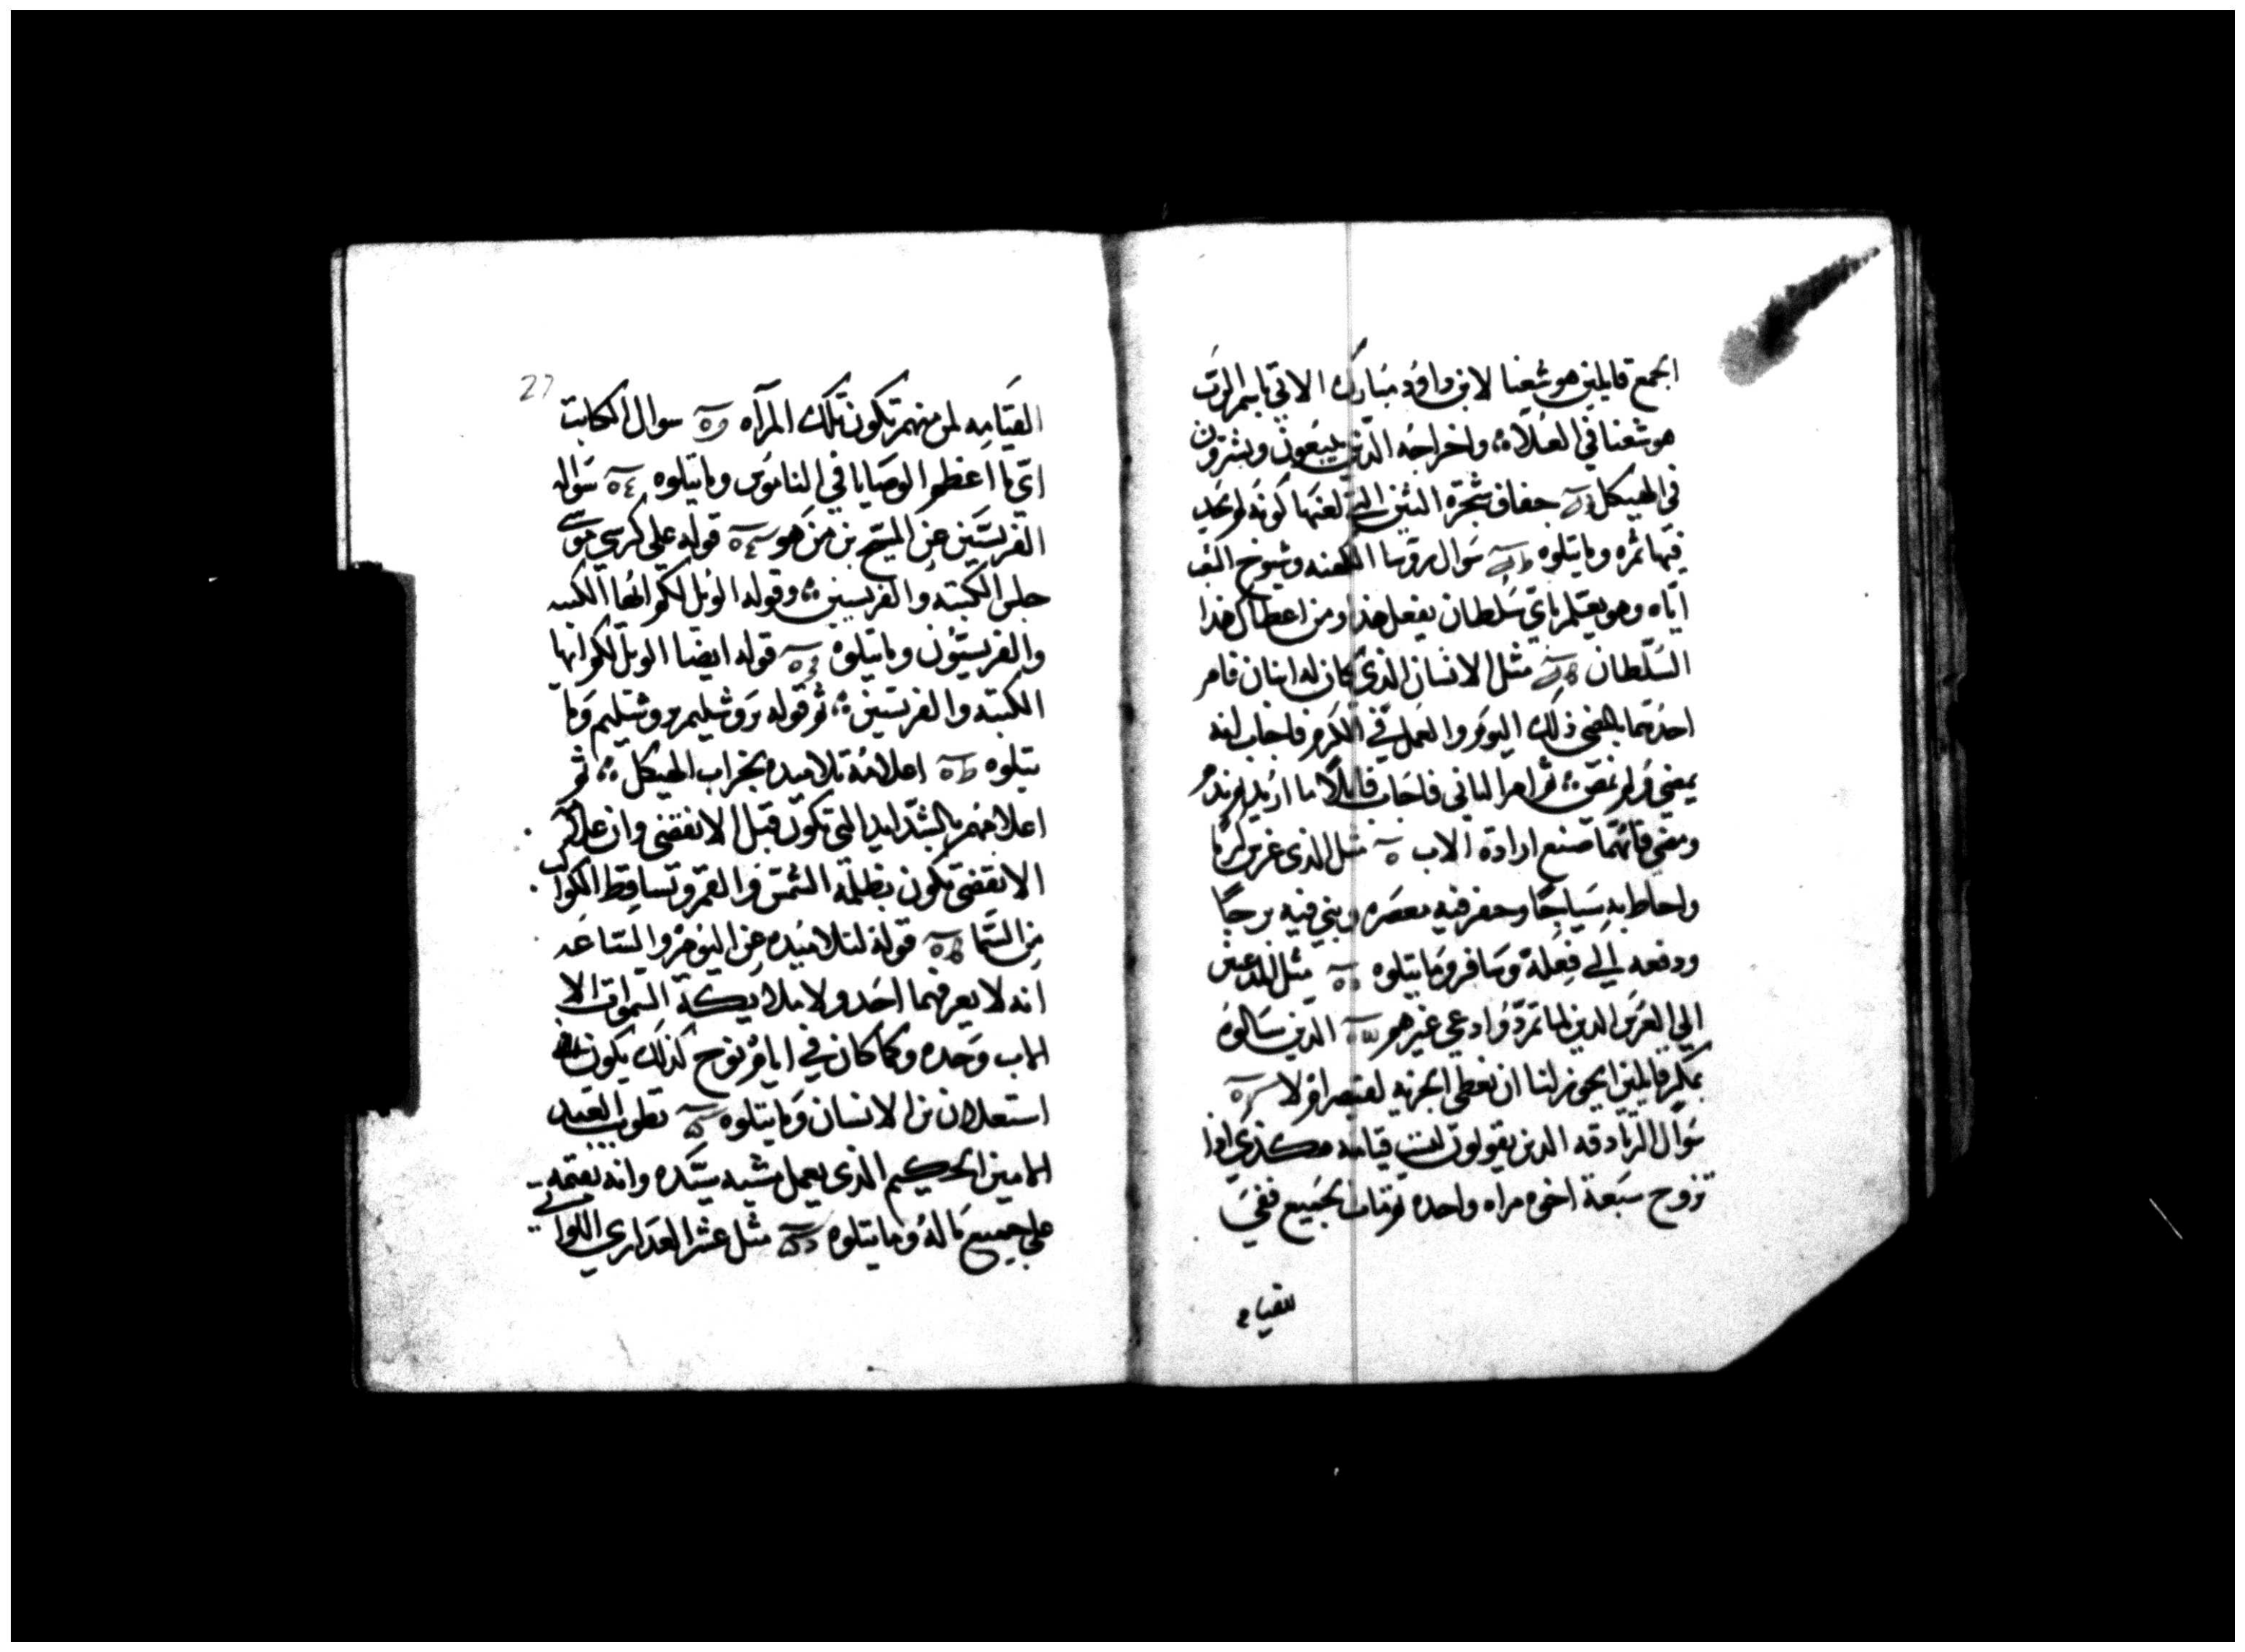 الجمع قايلين هوشعنا لابن داوود مبارك الاتي باسم الرب
هوشعنا في العلاه واخراجه الذين يبيعون ويشترون
في الهيكل جفاف شجرة التين التي لعنها كونه لم يجد
فيها ثمره وما يتلوه سوال روسا الكهنه وشيوخ الشعب
اياه وهو يعلم باي سلطان يفعل هذا ومن اعطاك هذا
السلطان مثل الانسان الذي كان له ابنان فامر
احدهما يمضي ذلك اليوم والعمل في الكرم فاجاب انه
يمضي ولم يمض ثم امر الثاني فاجاب قايلا ما اريد ثم ندم
ومضي فايهما صنع ارادة الاب مثل الذي غرس كرما
واحاط به سياجا وحفر فيه معصره وبني فيه برجا
ودفعه الي فعلة وسافر وما يتلوه مثل المدعين
الي العرس الذين لما تمردوا دعي غيرهم الذين سالوه
بمكر قايلين ايجوز لنا ان نعطي الجزيه لقيصر او لا
سوال الزنادقه الذين يقولون ليست قيامه هكذي اذا
تزوج سبعة اخوه مراه واحده ثم مات الجميع ففي
القيامه
27
القيامه لمن منهم تكون تلك المرآه سوال الكاتب
اي ما اعظم الوصايا في الناموس وما يتلوه سواله
الفريسين عن المسيح بن من هو قوله علي كرسي موسي
جلس الكتبه والفريسين وقوله الويل لكم ايها الكتبه
والفريسيون وما يتلوه قوله ايضا الويل لكم ايها
الكتبه والفريسين ثم قوله يروشليم يروشليم وما
يتلوه اعلامه تلاميده بخراب الهيكل ثم
اعلامهم بالشدايد التي تكون قبل الانقضي وان عند
الانقضي تكون بظلمة الشمس والقمر وتساقط الكواكب
من السما قوله لتلاميده عن اليوم والساعه
انه لا يعرفهما احد ولا ملايكة السموات الا
الاب وحده وكما كان في ايام نوح كذلك يكون
استعلان بن الانسان وما يتلوه تطويب العبد
الامين الحكيم الذي يعمل مشية سيده وانه يقيمه
علي جميع ماله وما يتلوه مثل عشر العذاري اللواتي